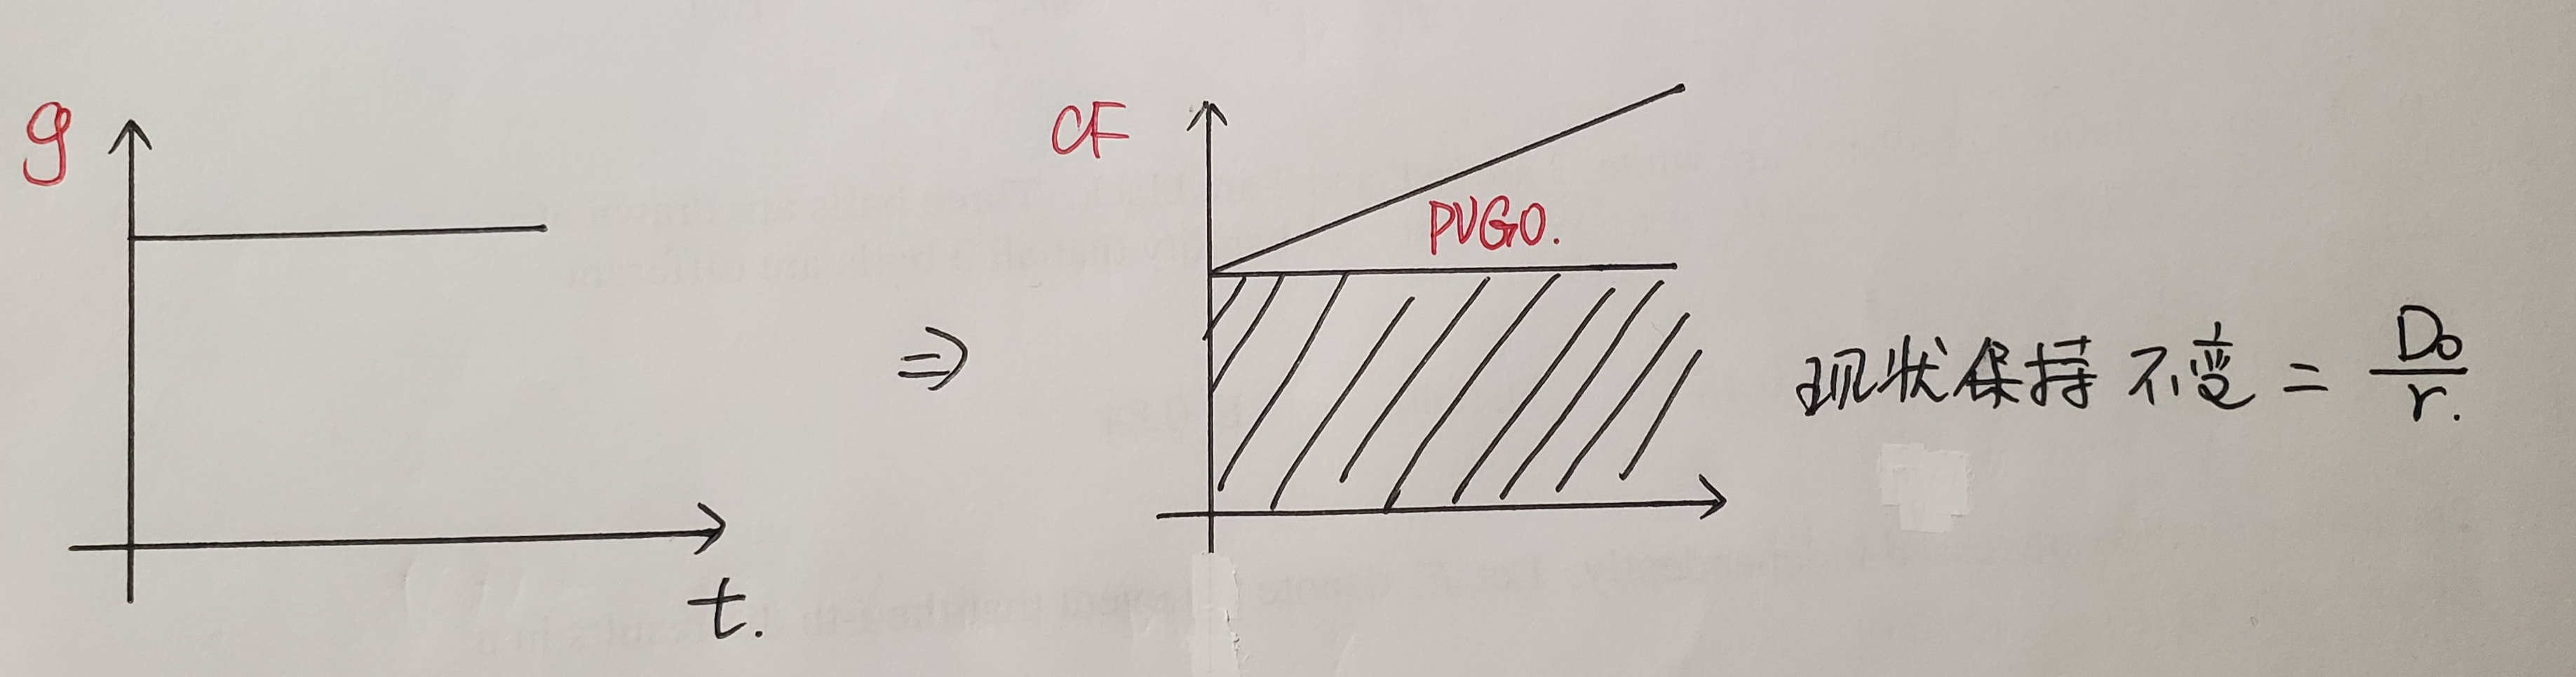 g
t.
⇒
CF
PVGO.
现状保持不变 = D₀/r.